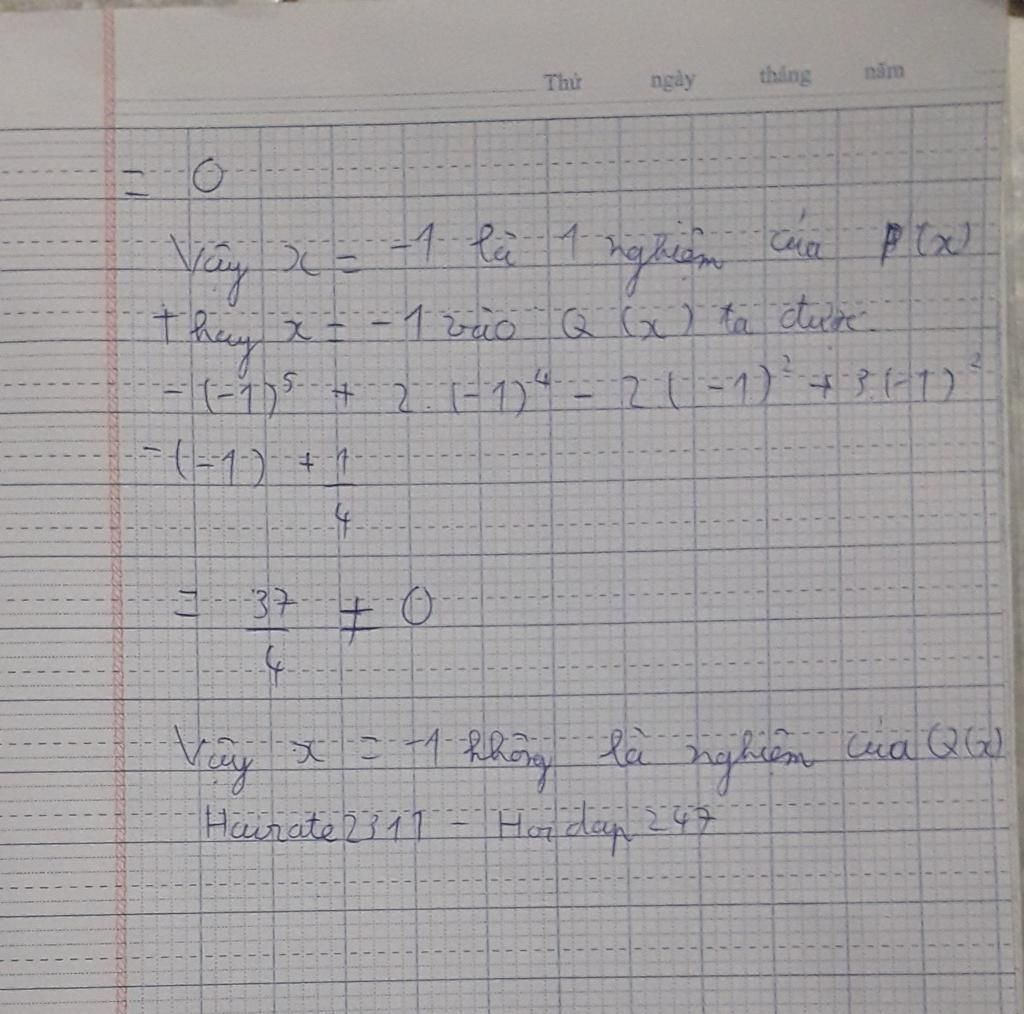 Thứ ngày tháng năm
= 0
Vậy x = -1 là 1 nghiệm của P(x)
+ thay x = -1 vào Q(x) ta được
-(-1)⁵ + 2.(-1)⁴ - 2(-1)² + 3.(-1)²
-(-1) + 1/4
= 37/4 ≠ 0
Vậy x = -1 không là nghiệm của Q(x)
Hairate2311 - Hoidap247